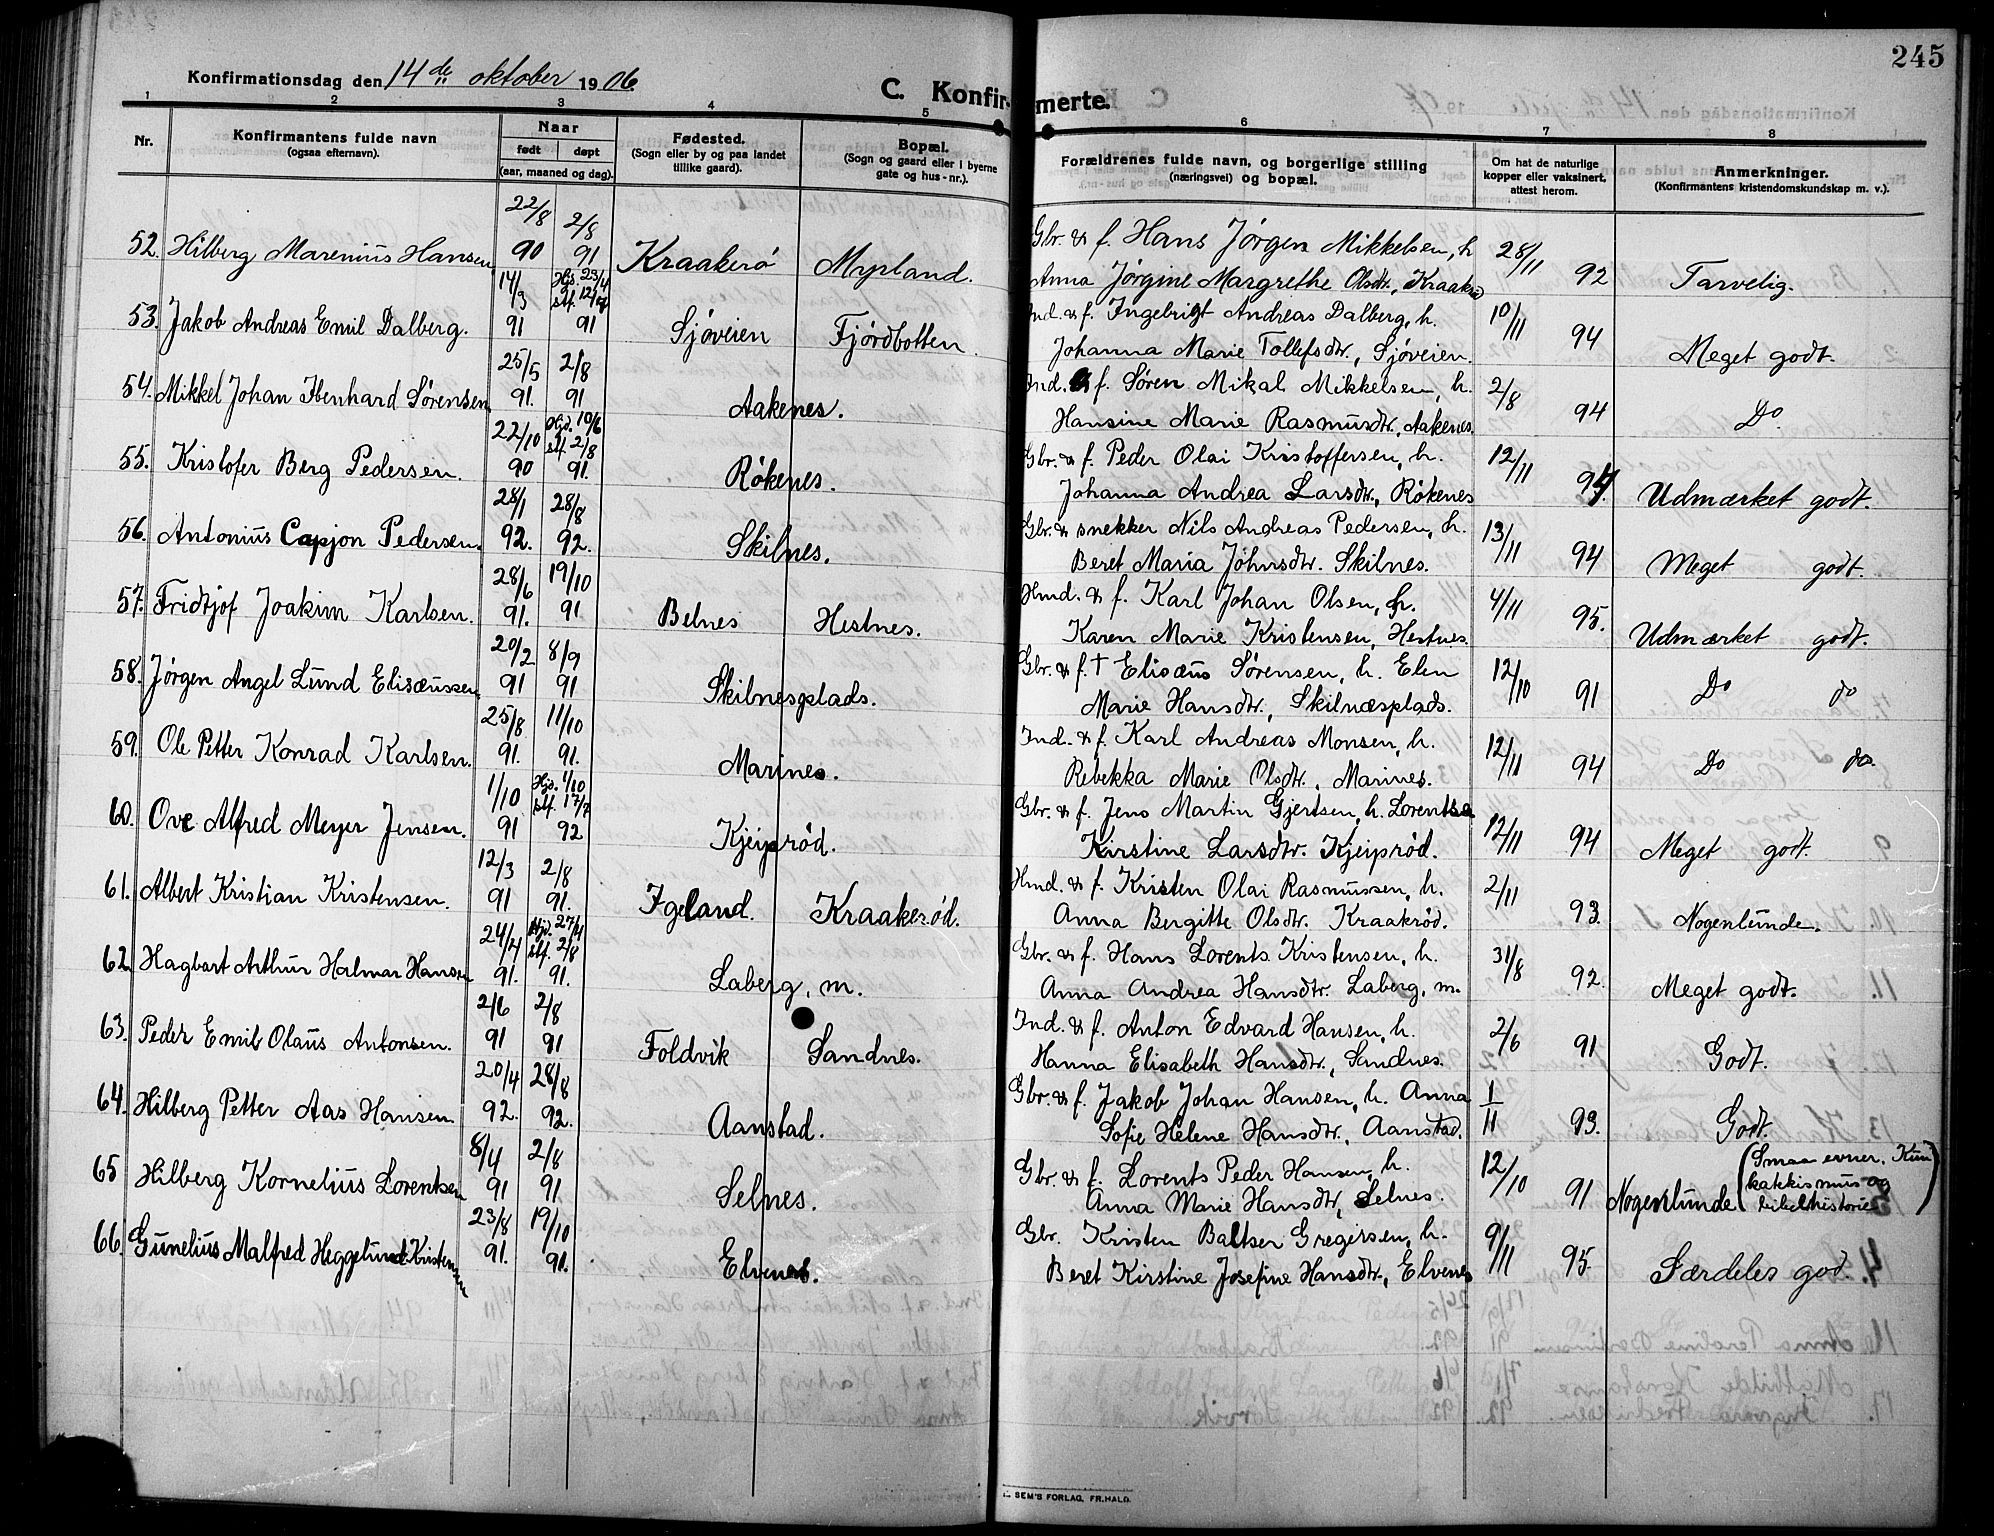 245
Konfirmationsdag den 14 de oktober 1906.
C. Konfirmerte.
1 2 3 4 5 6 7 8
Nr.
Konfirmantens fulde navn
(ogsaa efternavn).
Naar
født døpt
(aar, maaned og dag).
Fødested.
(Sogn eller by og paa landet
tillike gaard).
Bopæl.
(Sogn og gaard eller i byerne
gate og hus-nr.).
Forældrenes fulde navn, og borgerlige stilling
(næringsvei) og bopæl.
Om hat de naturlige
kopper eller vaksinert,
attest herom.
Anmerkninger.
(Konfirmantens kristendomskundskap m. v.).
22/8 2/8 Gbr. & f. Hans Jørgen Mikkelsen, h. 28/11
52. Hilberg Marenius Hansen 90 91 Kraakerø Myrland. Anna Jørgine Margrethe Olsdtr., Kraakrød 92 Tarvelig.
14/3 Hjd. 23/4 stf. 12/7 Ind. & f. Ingebrigt Andreas Dalberg, h. 10/11
53. Jakob Andreas Emil Dalberg. 91 91 Sjøveien Fjordbotten. Johanna Marie Tollefsdtr., Sjøveien. 94 Meget godt.
25/5 2/8 Ind. & f. Søren Mikal Mikkelsen, h. 2/8
54. Mikkel Johan Ibenhard Sørensen 91. 91 Aakenes. Hansine Marie Rasmusdtr., Aakenes. 94 Do
22/10 Hjd. 10/6 stf. 2/8 Gbr. & f. Peder Olai Kristoffersen, h. 12/11
55. Kristofer Berg Pedersen. 90 91. Røkenes. Johanna Andrea Larsdtr., Røkenes 94 Udmærket godt.
28/1 28/8 Gbr. & snekker Nils Andreas Pedersen, h. 13/11
56. Antonius Capjon Pedersen. 92. 92. Skilnes. Beret Maria Johnsdtr. Skilnes. 94 Meget godt.
28/6 19/10 Hmd. & f. Karl Johan Olsen, h. 4/11
57. Fridtjof Joakim Karlsen. 91. 91 Belnes Hestnes. Karen Marie Kristensen, Hestnes. 95. Udmærket godt.
20/2 8/9 Gbr. & f. † Elisæus Sørensen, h. Elen 12/10
58. Jørgen Angel Lund Elisæussen 91 91 Skilnesplads. Marie Hansdtr., Skilnæsplads. 91 Do do
25/8 11/10 Ind. & f. Karl Andreas Monsen, h. 12/11
59. Ole Petter Konrad Karlsen. 91. 91. Marines. Rebekka Marie Olsdtr., Marines. 94 Do do.
1/10 Hjd. 1/10 stf. 17/7 Gbr. & f. Jens Martin Gjertsen, h. Lorentse 12/11
60. Ove Alfred Meyer Jensen. 91 92 Kjeiprød. Kirstine Larsdtr. Kjeiprød. 94 Meget godt.
12/3 2/8 Hmd. & f. Kristen Olai Rasmussen, h. 2/11
61. Albert Kristian Kristensen. 91 91. Igeland. Kraakerød. Anna Bergitte Olsdtr. Kraakrød. 93. Nogenlunde.
24/4 Hjd. 27/4 stf. 2/8 Gbr. & f. Hans Lorents Kristensen, h. 31/8
62. Hagbart Arthur Halmar Hansen 91. 91. Laberg, m. Anna Andrea Hansdtr. Laberg, m. 92. Meget godt.
2/6 2/8 Ind. & f. Anton Edvard Hansen, h. 2/6
63. Peder Emil Olaus Antonsen. 91 91 Foldvik Sandnes. Hanna Elisabeth Hansdtr., Sandnes. 91 Godt.
20/4 28/8 Gbr. & f. Jakob Johan Hansen, h. Anna 1/11
64. Hilberg Petter Aas Hansen 92. 92. Aanstad. Sofie Helene Hansdtr., Aanstad. 93. Godt.
8/4 2/8 Gbr. & f. Lorents Peder Hansen, h. 12/10
65 Hilberg Kornelius Lorentsen 91 91 Selnes. Anna Marie Hansdtr., Selnes. 91 Nogenlunde (Smaa evner. Kun katekismus og bibelhistorie)
23/8 19/10 Gbr. Kristen Baltser Gregersen, h. 9/11
66. Gunelius Malfred Heggelund Kristensen 91. 91. Elvenes. Beret Kirstine Josefine Hansdtr., Elvenes 95. Særdeles god.
SEM'S FORLAG, FR.HALD.